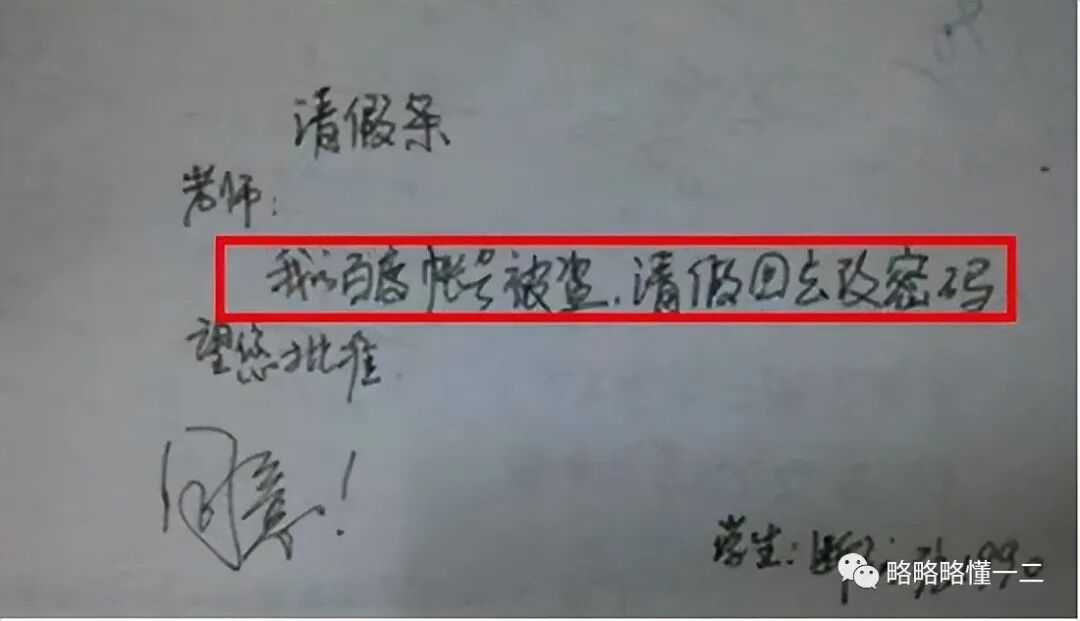 请假条
老师:
我的百度帐号被盗,请假回去改密码
望您批准
同意!
学生:
略略略懂一二